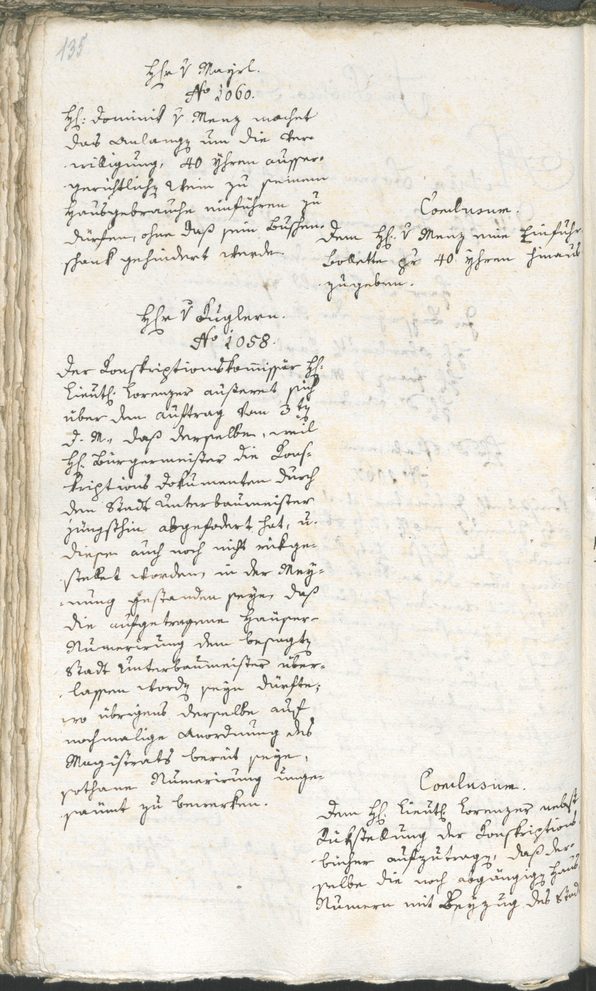 135
Hhr v Mayrl.
No 1060.
Hh: Dominik v Menz machet
das Anlangen um die Ver-
willigung, 40 Yhren ausser-
gerichtlichen Wein zu seinem
Hausgebrauche einführen zu
dürfen, ohne daß sein Buschen-
schank gehindert werde.
Conclusum.
Dem Hh: v Menz eine Einfuhr
Bollette pr 40 Yhren hinaus
zugeben.
Hhr v Kuglern.
No 1058.
Der Konskriptionskommissär Hh:
Lieut: Lorenzer äußeret sich
über den Auftrag vom 3ten
d. M., daß derselbe, weil
Hh: Bürgermeister die Kons-
kriptions Dokumenten durch
den Stadt Unterbaumeister
jüngsthin abgefodert hat, u.
diese auch noch nicht rükge-
stellet worden, in der Mey-
nung gestanden seye, daß
die aufgetragene Häuser-
Numerirung dem besagten
Stadt Unterbaumeister über-
lassen worden seyn dürfte;
wo übrigens derselbe auf
nochmalige Anordnung des
Magistrats bereit seye,
sothane Numerirung unge-
säumt zu bewerken.
Conclusum.
Dem Hh: Lieut: Lorenzer nebst
Rükstellung der Konskriptions-
bücher aufzutragen, daß der-
selbe die noch abgängigen Haus
Numern mit Beyzug des Stadt